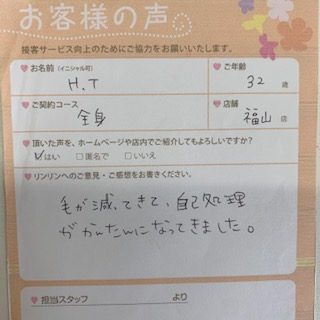 お客様の声
接客サービス向上のためにご協力をお願いいたします。
♥お名前(イニシャル可) ♥ご年齢
H.T 32歳
♥ご契約コース ♥店舗
全身 福山店
♥頂いた声を、ホームページや店内でご紹介してもよろしいですか?
☑はい □匿名で □いいえ
♥リンリンへのご意見・ご感想をお書きください。
毛が減ってきて、自己処理
がかんたんになってきました。
♥担当スタッフ より